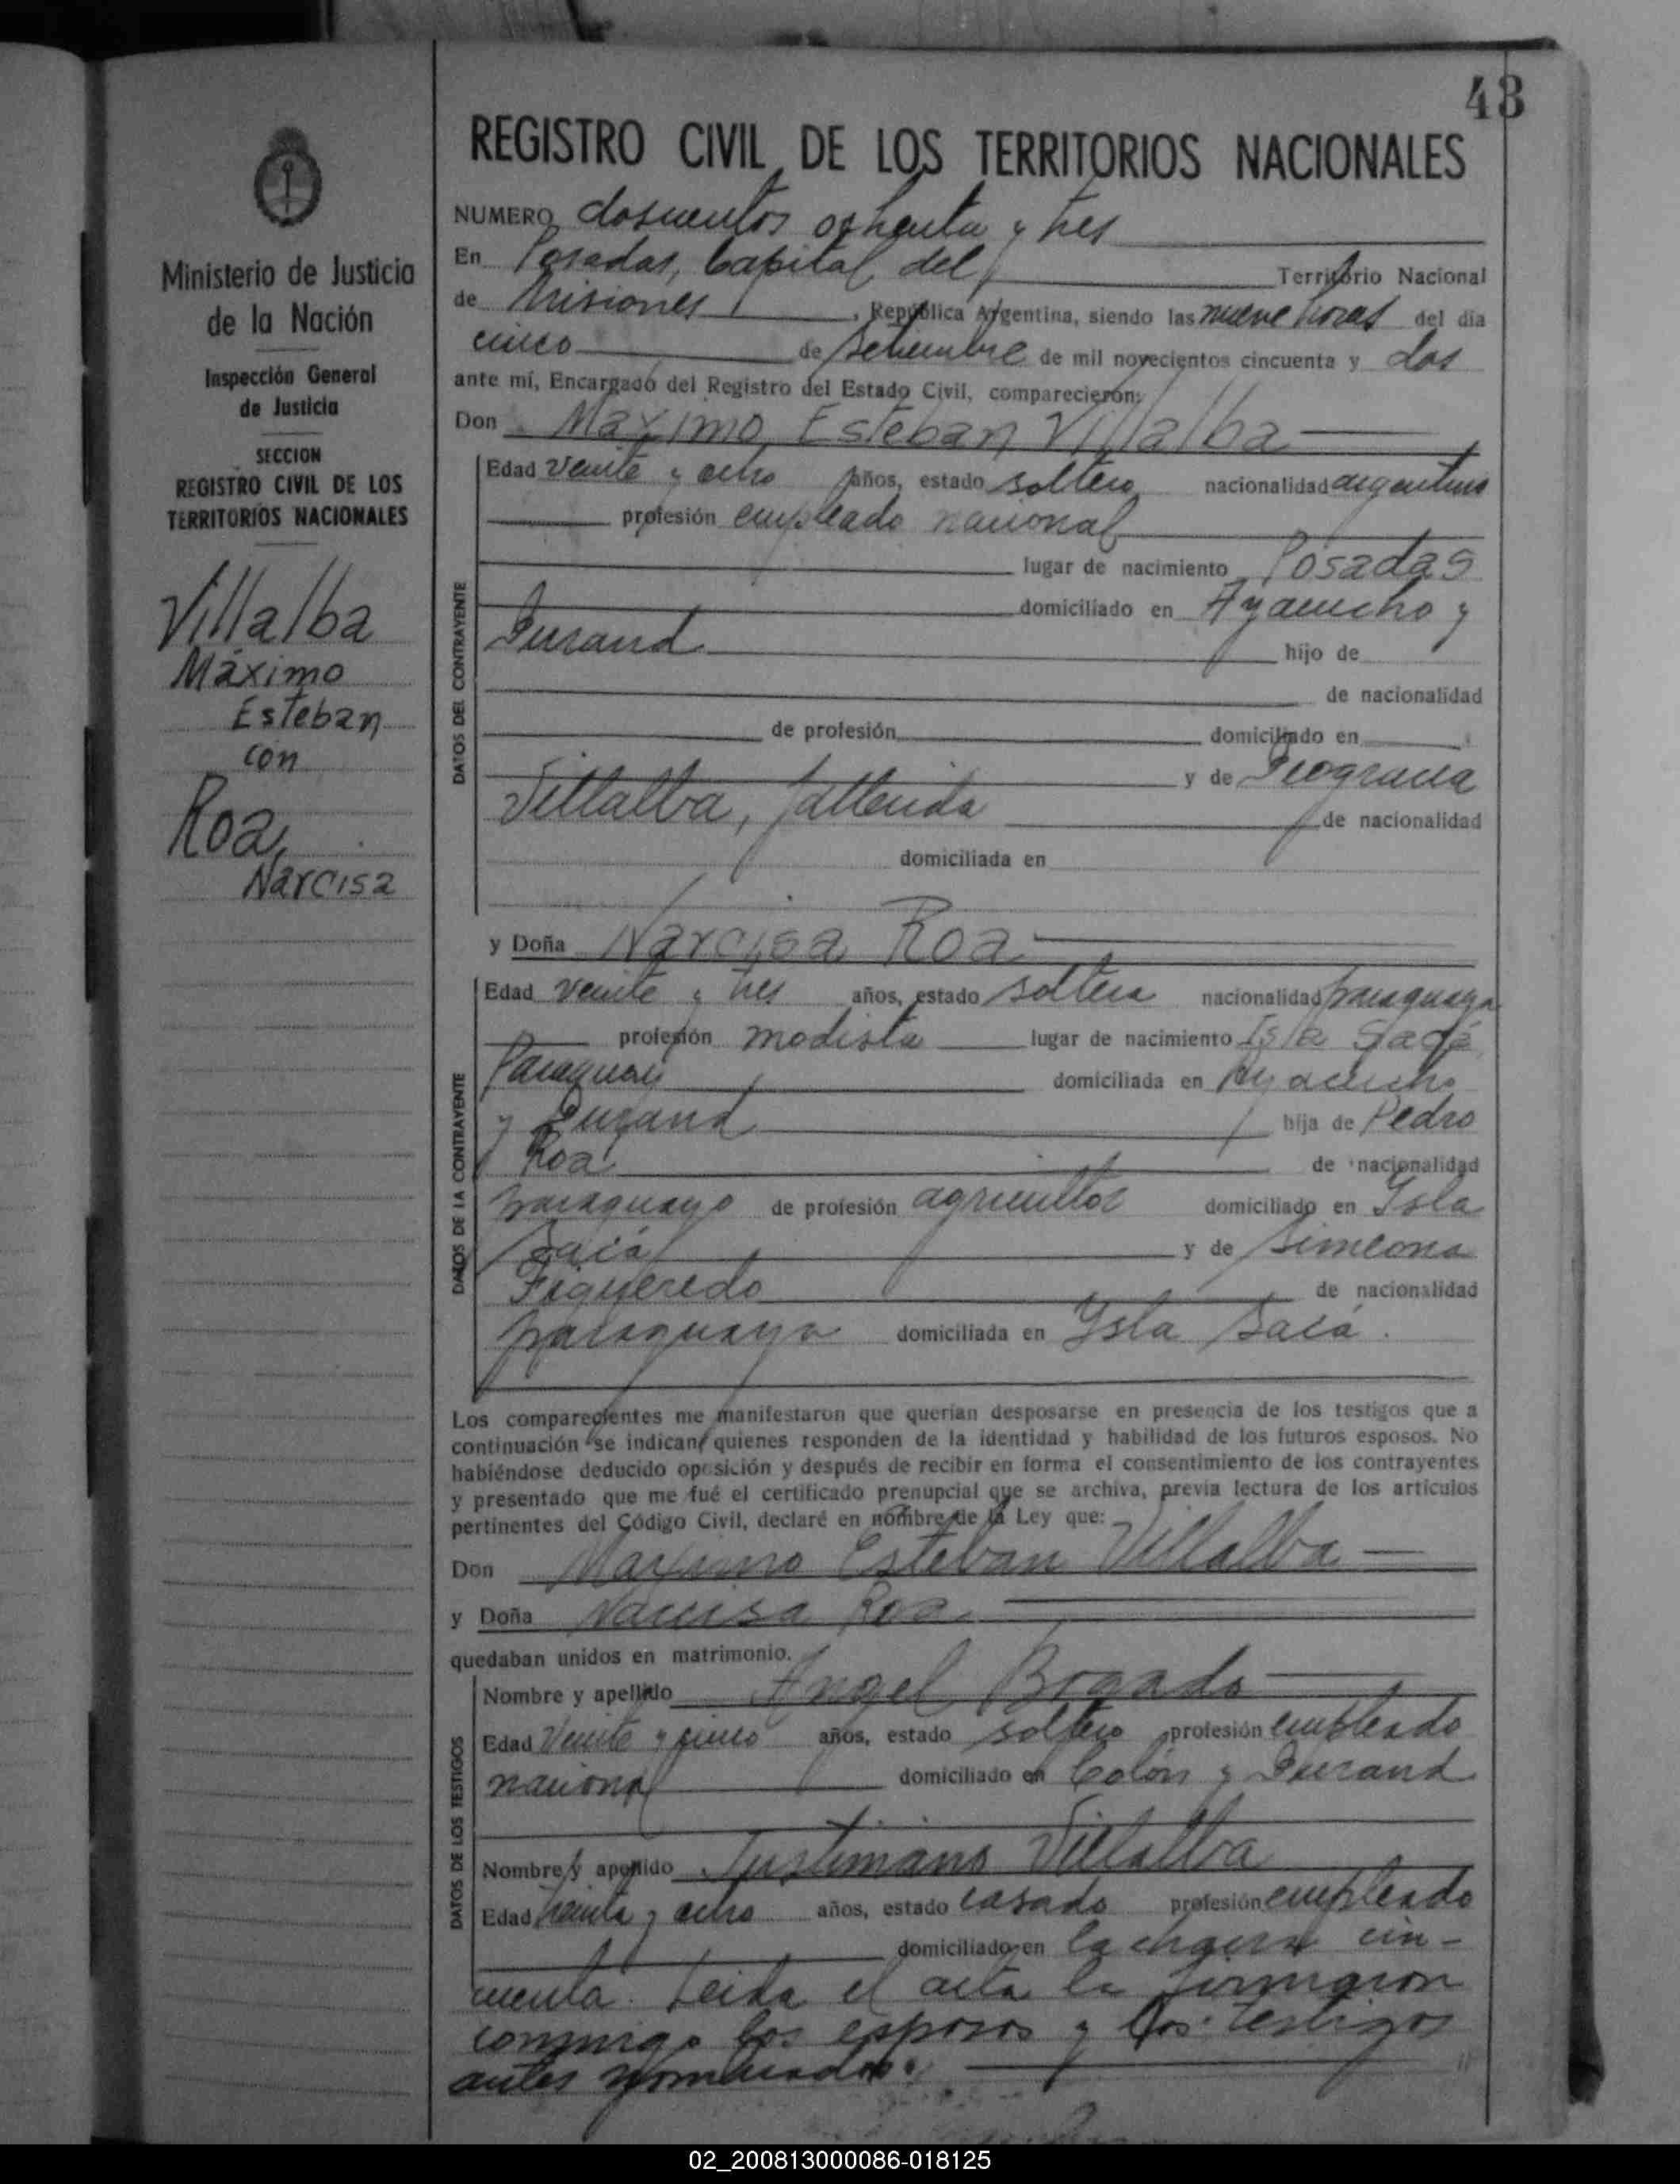 48
REGISTRO CIVIL DE LOS TERRITORIOS NACIONALES
Ministerio de Justicia
de la Nación
Inspección General
de Justicia
SECCION
REGISTRO CIVIL DE LOS
TERRITORIOS NACIONALES
Villalba
Máximo
Esteban
con
Roa,
Narcisa
NUMERO doscientos ochenta y tres
En Posadas, Capital del Territorio Nacional
de Misiones, República Argentina, siendo las nueve horas del día
cinco de setiembre de mil novecientos cincuenta y dos
ante mí, Encargado del Registro del Estado Civil, comparecieron:
Don Maximo Esteban Villalba
DATOS DEL CONTRAYENTE
Edad veinte y ocho años, estado soltero nacionalidad argentino
profesión empleado nacional
lugar de nacimiento Posadas
domiciliado en Ayacucho y
Durand hijo de
de nacionalidad
de profesión domiciliado en
y de Deogracia
Villalba, fallecida de nacionalidad
domiciliada en
y Doña Narcisa Roa
DATOS DE LA CONTRAYENTE
Edad veinte y tres años, estado soltera nacionalidad paraguaya
profesión modista lugar de nacimiento Isla
Paraguay domiciliada en Ayacucho
y Durand hija de Pedro
Roa de nacionalidad
paraguayo de profesión agricultor domiciliado en Isla
Sacá y de Simeona
Figueredo de nacionalidad
paraguaya domiciliada en Isla Sacá.
Los comparecientes me manifestaron que querían desposarse en presencia de los testigos que a
continuación se indican, quienes responden de la identidad y habilidad de los futuros esposos. No
habiéndose deducido oposición y después de recibir en forma el consentimiento de los contrayentes
y presentado que me fué el certificado prenupcial que se archiva, previa lectura de los artículos
pertinentes del Código Civil, declaré en nombre de la Ley que:
Don Maximo Esteban Villalba
y Doña Narcisa Roa
quedaban unidos en matrimonio.
DATOS DE LOS TESTIGOS
Nombre y apellido Angel Bogado
Edad Veinte y cinco años, estado soltero profesión empleado
nacional domiciliado en Colón y Durand
Nombre y apellido Justiniano Villalba
Edad treinta y ocho años, estado casado profesión empleado
domiciliado en la chacra cin-
cuenta. Leida el acta la firmaron
conmigo los esposos y los testigos
antes nombrados.
02_200813000086-018125